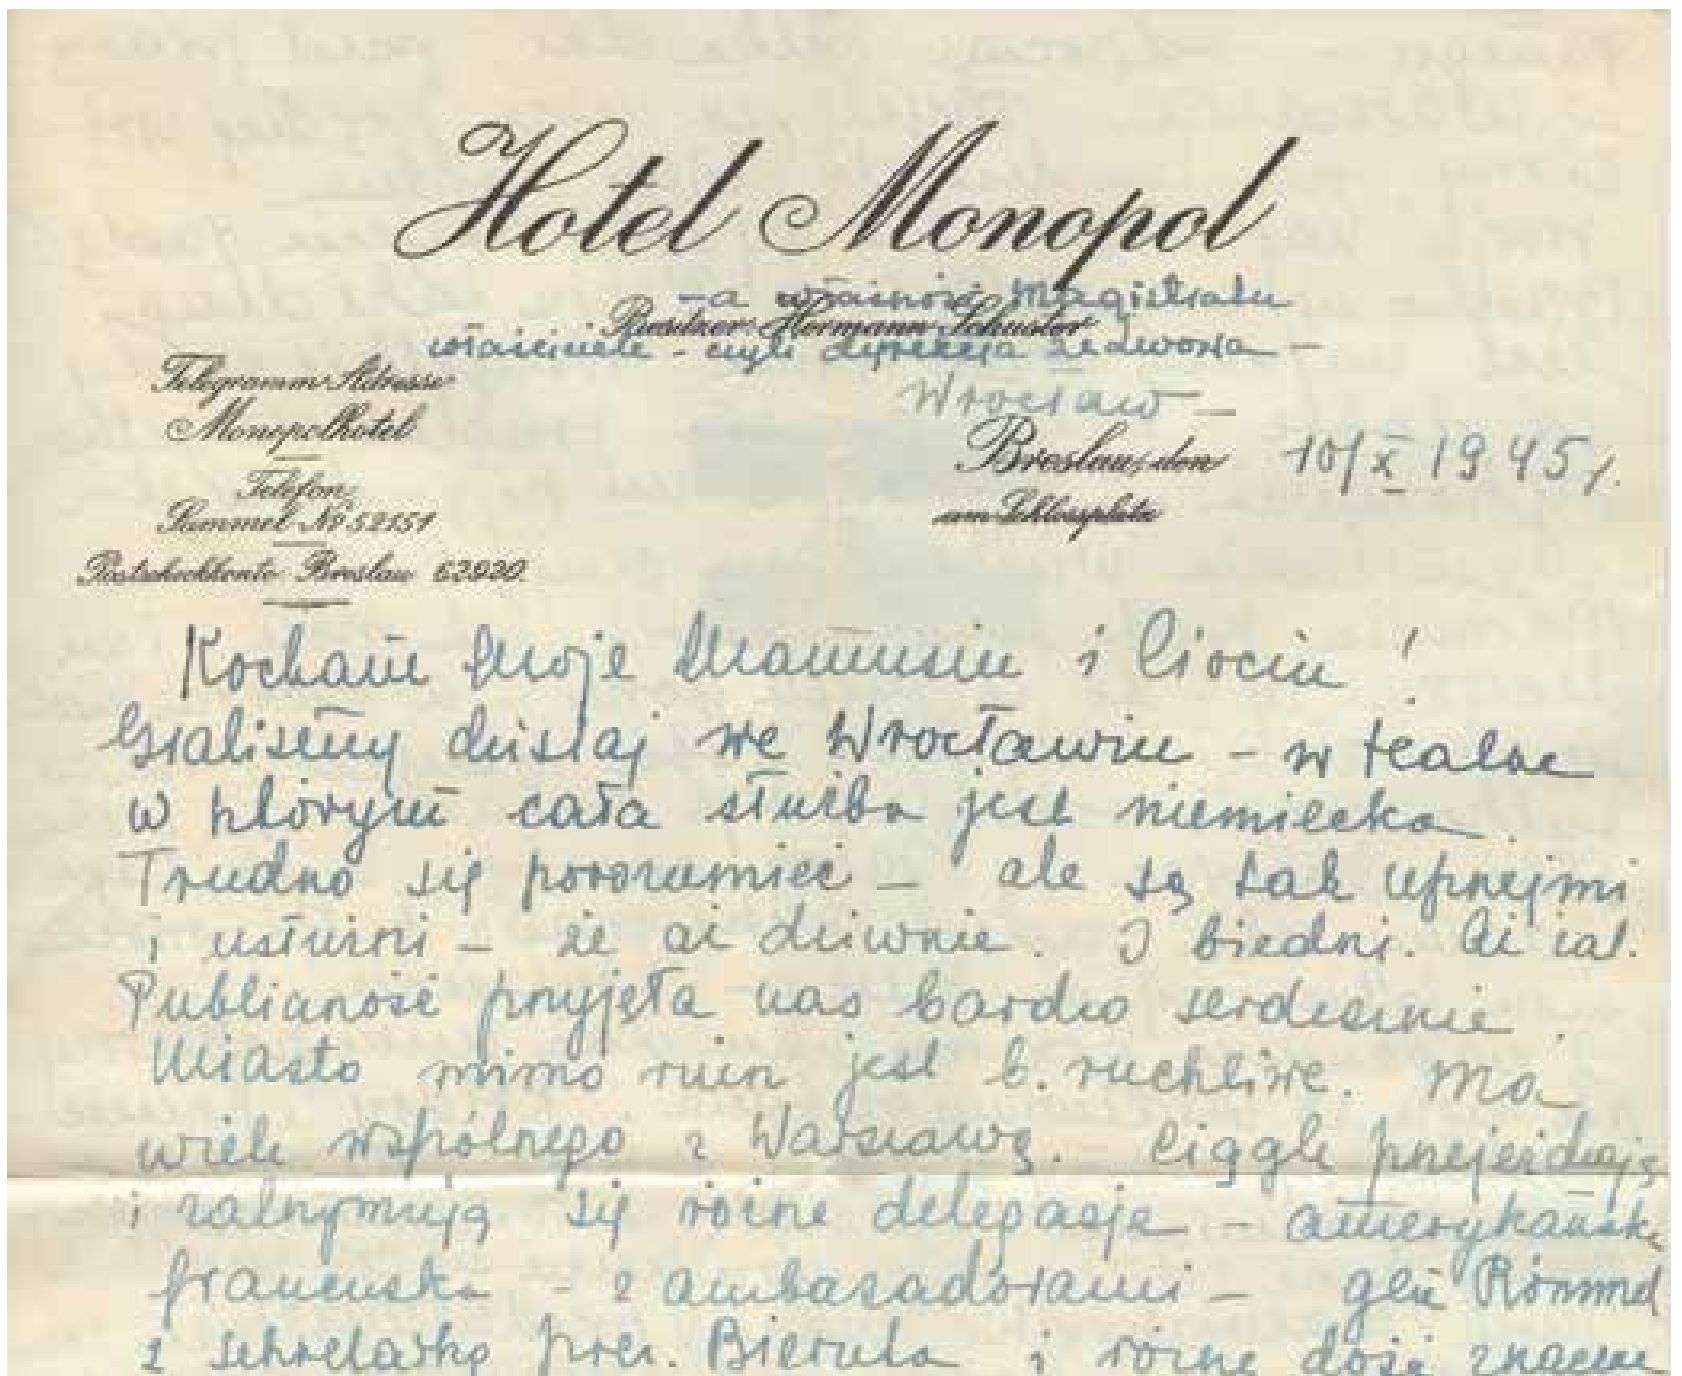 Hotel Monopol
- a własność Magistratu
Besitzer: Hermann Schuster
właściciele - czyli dyrekcja żydowska -
Telegramm-Adresse
Wrocław -
Monopolhotel
Breslau, den 10/X 1945 r.
Telefon:
Sammel-Nr 52151
am Schlossplatz
Postscheckkonto Breslau 62930.
Kochane Moje Mamusiu i Ciociu !
Graliśmy dzisiaj we Wrocławiu - w teatrze
w którym cała służba jest niemiecka.
Trudno się porozumieć - ale są tak uprzejmi
i usłużni - że aż dziwnie. I biedni. Aż żal.
Publiczność przyjęła nas bardzo serdecznie.
Miasto mimo ruin jest b. ruchliwe. Ma
wiele wspólnego z Warszawą. Ciągle przejeżdżają
i zatrzymują się różne delegacje - amerykańska
francuska - z ambasadorami - gen Rómmel
z sekretarką prez. Bieruta i różne dość znaczne